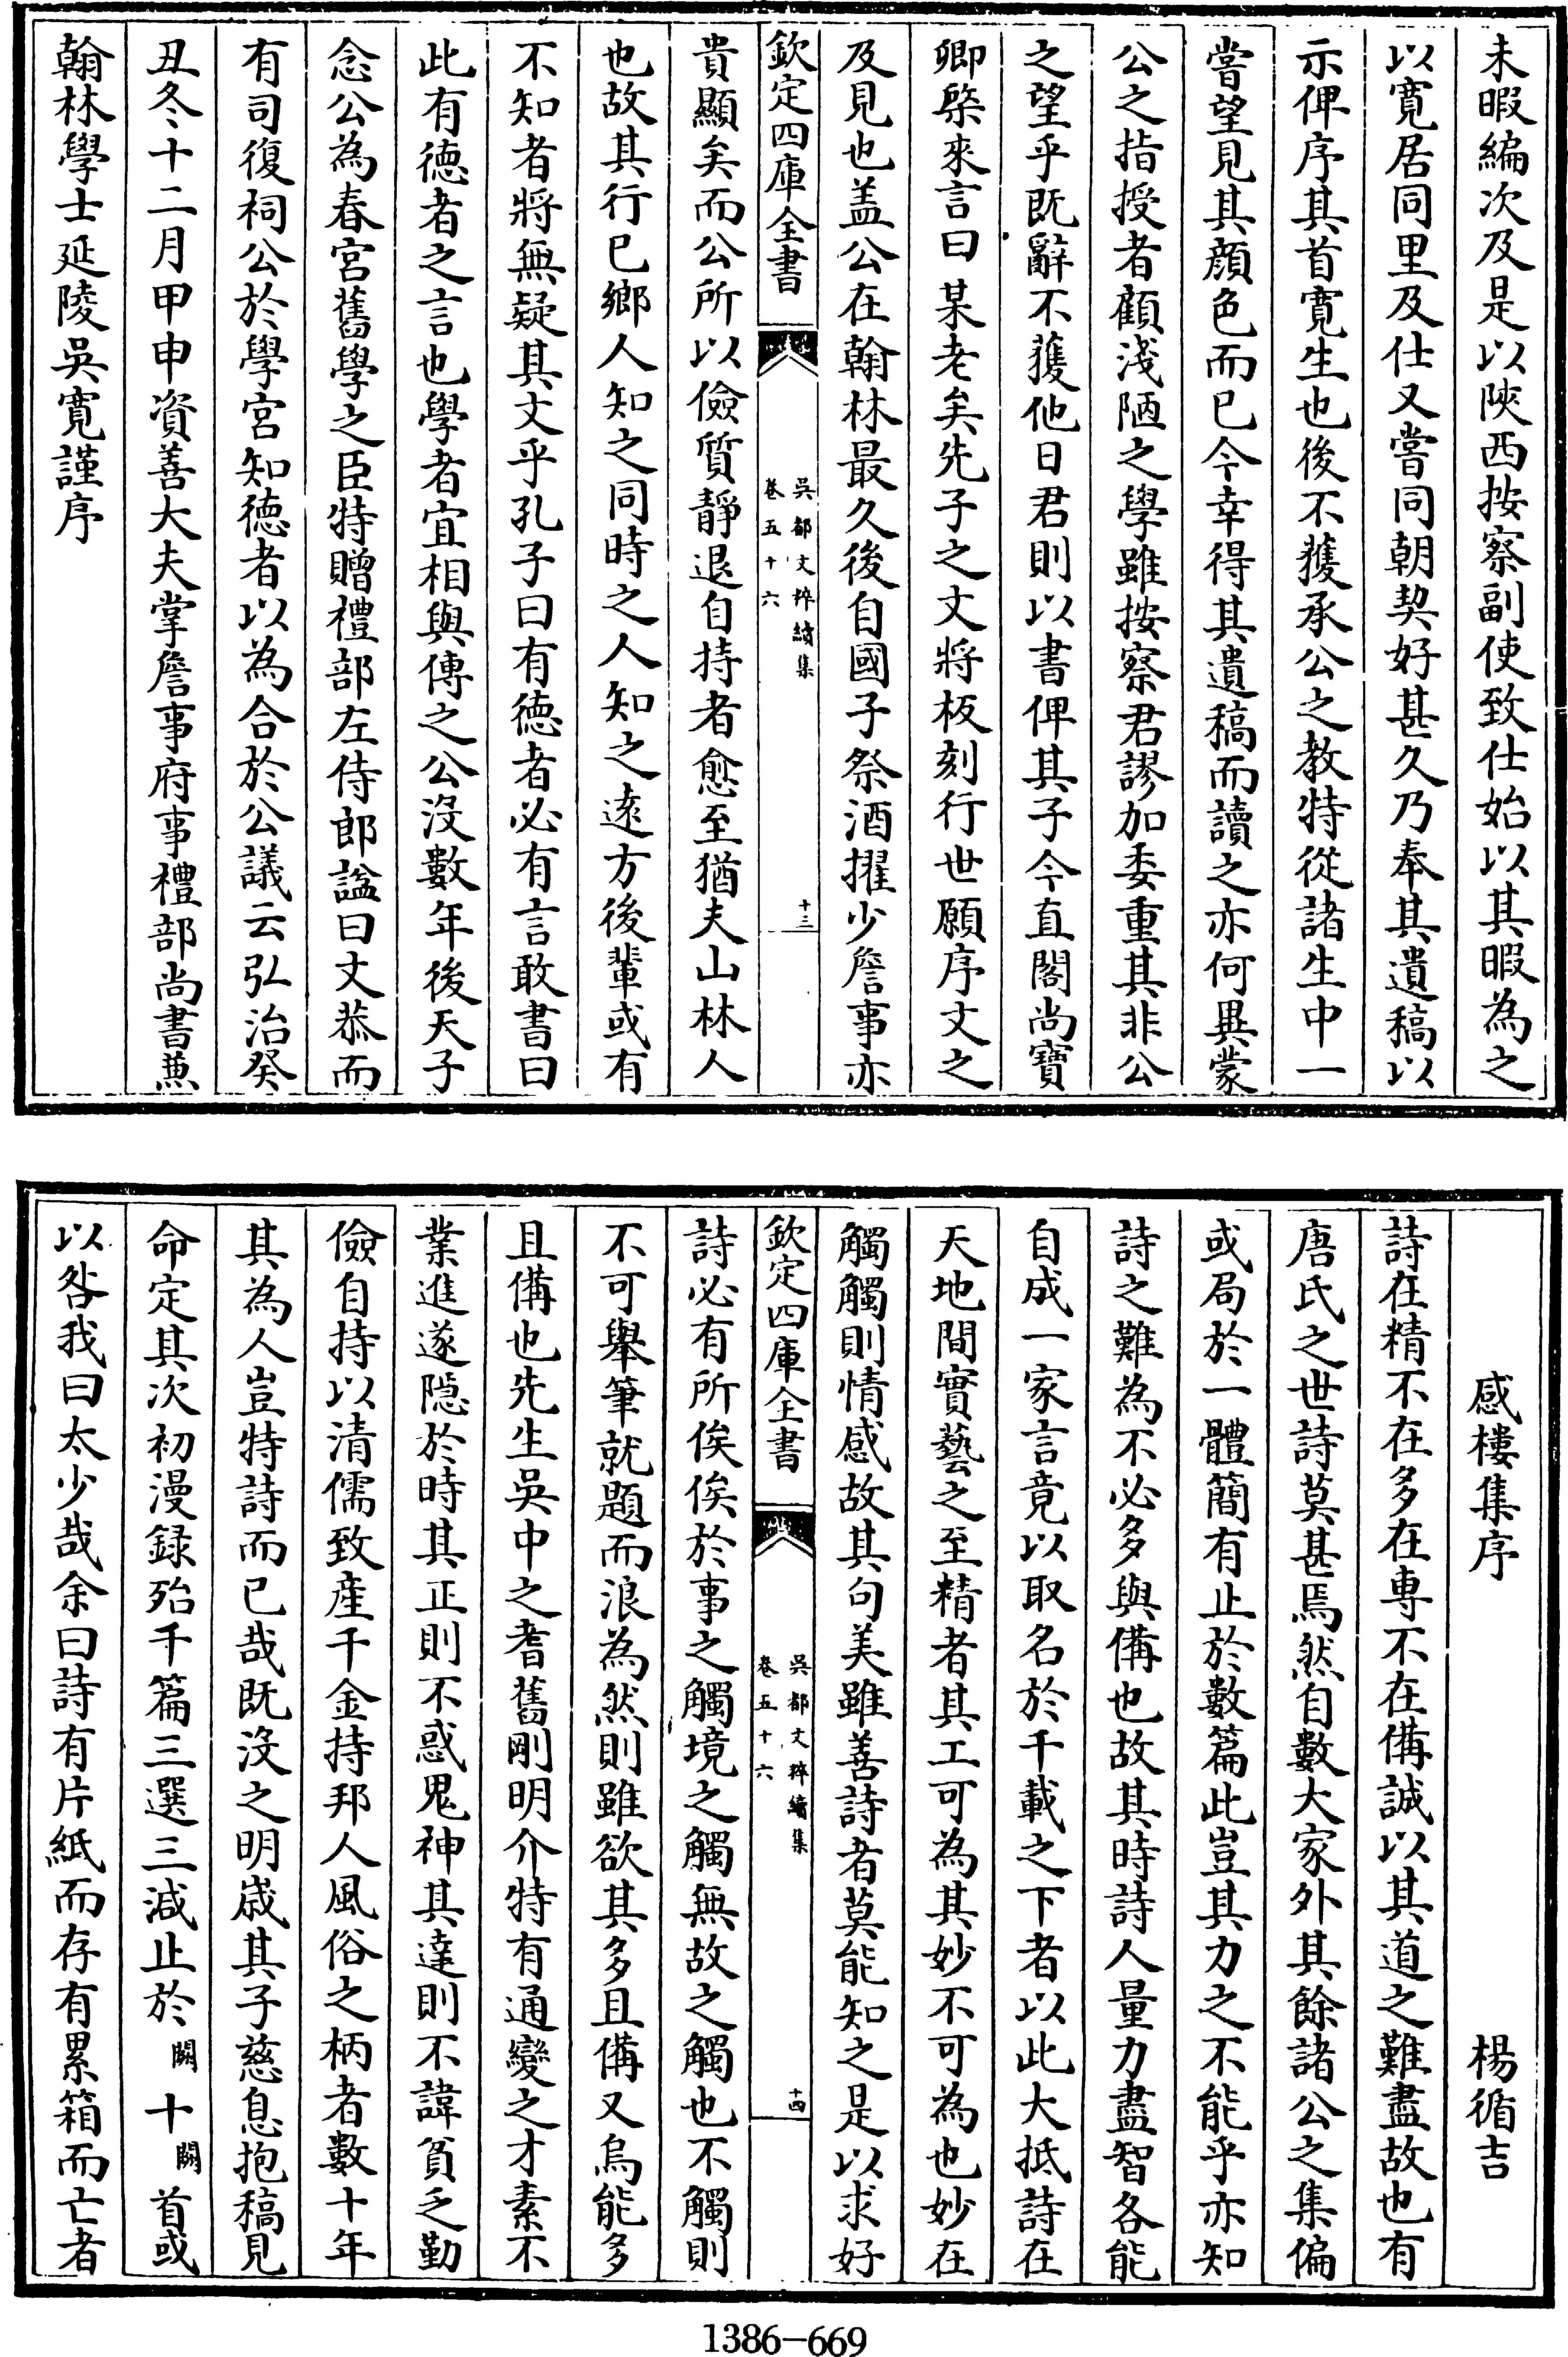 未暇編次及是以陜西按察副使致仕始以其暇為之
以寛居同里及仕又嘗同朝契好甚久乃奉其遺稿以
示俾序其首寛生也後不獲承公之教特從諸生中一
嘗望見其顔色而已今幸得其遺稿而讀之亦何異蒙
公之指授者顧淺陋之學雖按察君謬加委重其非公
之望乎既辭不獲他日君則以書俾其子今直閣尚寶
卿棨來言曰某老矣先子之文將板刻行世願序文之
及見也盖公在翰林最久後自國子祭酒擢少詹事亦
欽定四庫全書
吳都文粹續集
卷五十六
十三
貴顯矣而公所以儉質靜退自持者愈至猶夫山林人
也故其行已鄉人知之同時之人知之逺方後輩或有
不知者將無疑其文乎孔子曰有徳者必有言敢書曰
此有徳者之言也學者宜相與傳之公沒數年後天子
念公為春宮舊學之臣特贈禮部左侍郎諡曰文恭而
有司復祠公於學宮知徳者以為合於公議云弘治癸
丑冬十二月甲申資善大夫掌詹事府事禮部尚書兼
翰林學士延陵吳寛謹序
感樓集序
楊循吉
詩在精不在多在專不在備誠以其道之難盡故也有
唐氏之世詩莫甚焉然自數大家外其餘諸公之集偏
或局於一體簡有止於數篇此豈其力之不能乎亦知
詩之難為不必多與備也故其時詩人量力盡智各能
自成一家言竟以取名於千載之下者以此大抵詩在
天地間實藝之至精者其工可為其妙不可為也妙在
觸觸則情感故其句美雖善詩者莫能知之是以求好
欽定四庫全書
吳都文粹續集
卷五十六
十四
詩必有所俟俟於事之觸境之觸無故之觸也不觸則
不可舉筆就題而浪為然則雖欲其多且備又烏能多
且備也先生吳中之耆舊剛明介特有通變之才素不
業進遂隠於時其正則不惑鬼神其達則不諱貧乏勤
儉自持以清儒致産千金持邦人風俗之柄者數十年
其為人豈特詩而已哉既沒之明歳其子慈息抱稿見
命定其次初漫録殆千篇三選三減止於闕十闕首或
以咎我曰太少哉余曰詩有片紙而存有累箱而亡者
1386-669